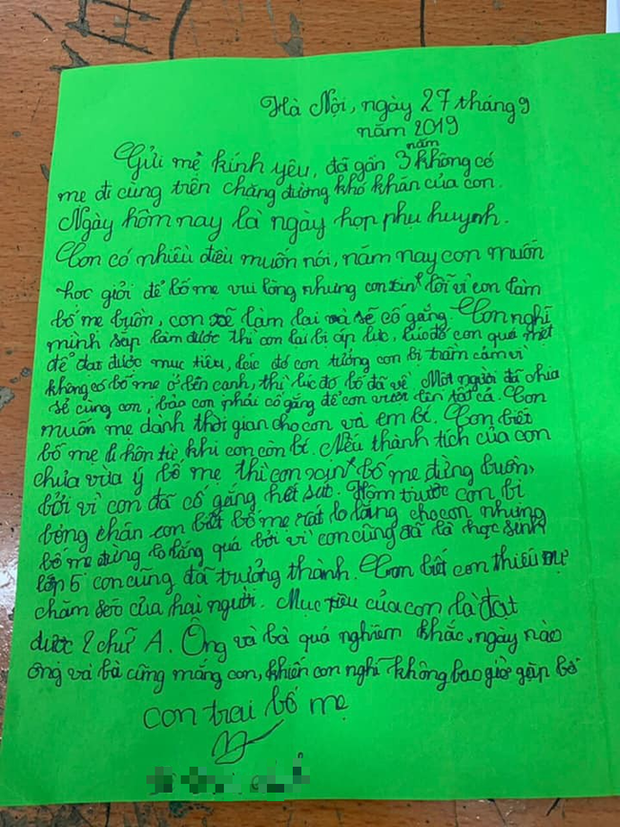 Hà Nội, ngày 27 tháng 9
năm 2019
Gửi mẹ kính yêu, đã gần 3 năm không có
mẹ đi cùng trên chặng đường khó khăn của con.
Ngày hôm nay là ngày họp phụ huynh.
Con có nhiều điều muốn nói, năm nay con muốn
học giỏi để bố mẹ vui lòng nhưng con xin lỗi vì con làm
bố mẹ buồn, con sẽ làm lại và sẽ cố gắng. Con nghĩ
mình sắp làm được thì con lại bị áp lực, lúc đó con quá mệt
để đạt được mục tiêu, lúc đó con tưởng con bị trầm cảm vì
không có bố mẹ ở bên cạnh, thì lúc đó bố đã về. Một người đã chia
sẻ cùng con, bảo con phải cố gắng để con vươn lên tất cả. Con
muốn mẹ dành thời gian cho con và em bí. Con biết
bố mẹ li hôn từ khi con còn bí. Nếu thành tích của con
chưa vừa ý bố mẹ thì con xin bố mẹ đừng buồn,
bởi vì con đã cố gắng hết sức. Hôm trước con bị
bỏng chân con biết bố mẹ rất lo lắng cho con nhưng
bố mẹ đừng lo lắng quá bởi vì con cũng đã là học sinh
lớp 5 con cũng đã trưởng thành. Con biết con thiếu sự
chăm sóc của hai người. Mục tiêu của con là đạt
được 2 chữ A. Ông và bà quá nghiêm khắc, ngày nào
ông và bà cũng mắng con, khiến con nghĩ không bao giờ gặp bố
con trai bố mẹ